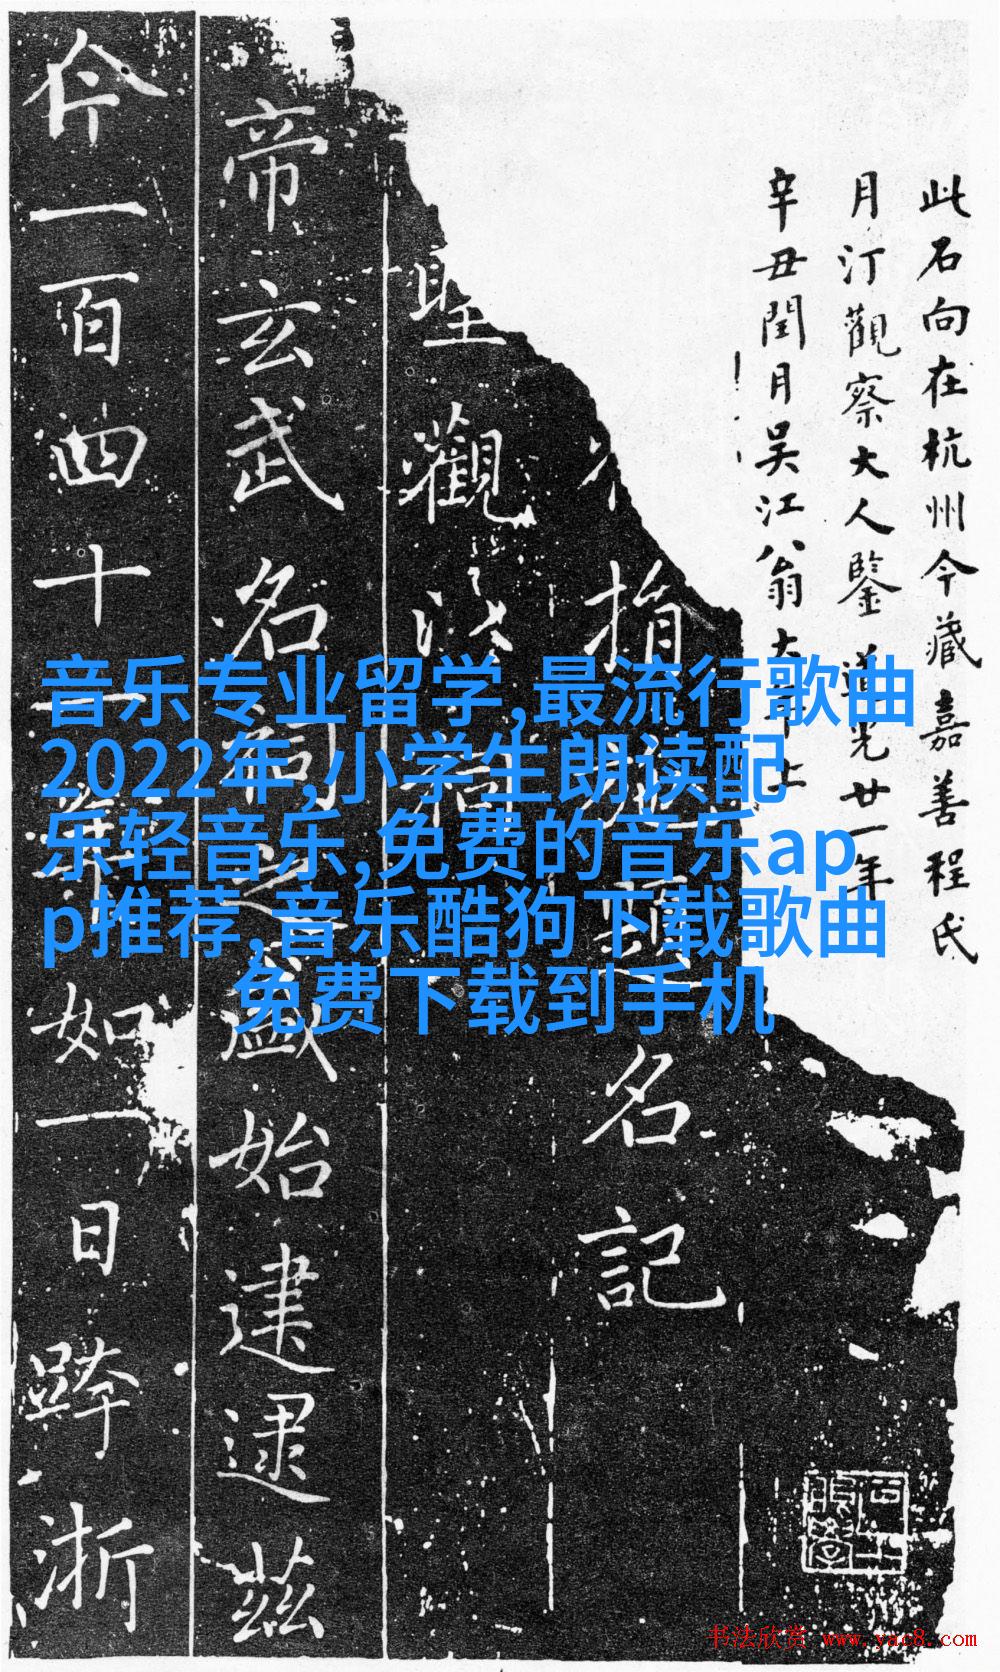 此石向在杭州今藏嘉善程氏
月汀觀察大人鑒道光廿一年
辛丑閏月吳江翁大年上
指
名記
聖觀
帝玄武名祠之盛始建逮茲
今一百四十一年如一日跨浙
音乐专业留学,最流行歌曲
2022年,小学生朗读配
乐轻音乐,免费的音乐ap
p推荐,音乐酷狗下载歌曲
免费下载到手机
书法欣赏 www.yac8.com